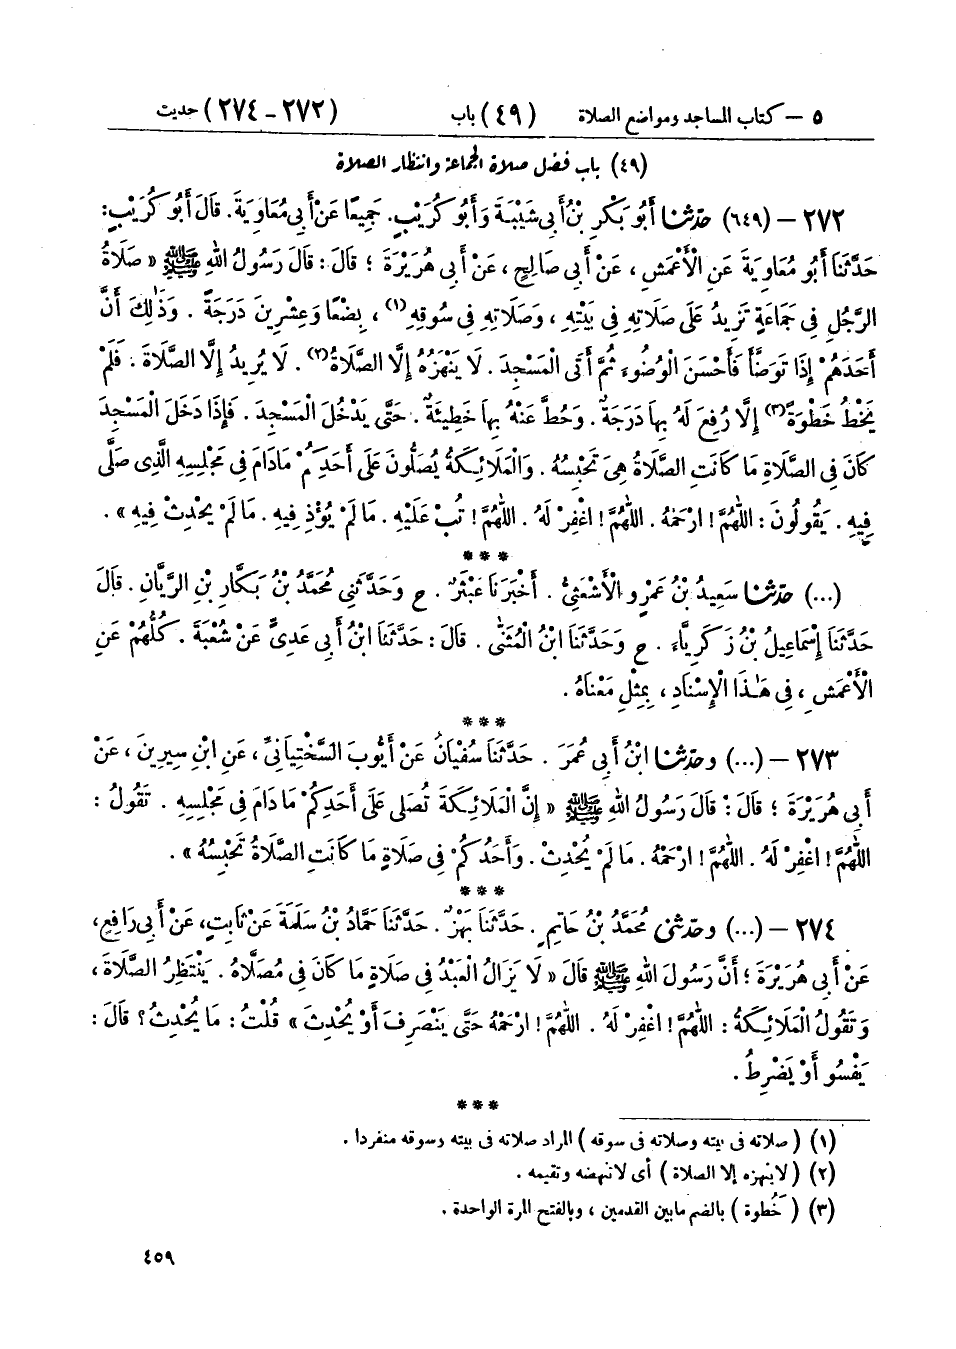 ٥ — كتاب المساجد ومواضع الصلاة (٤٩) باب (٢٧٢ - ٢٧٤) حديث
(٤٩) باب فضل صلاة الجماعة وانتظار الصلاة
٢٧٢ — (٦٤٩) حَدَّثَنَا أَبُو بَكْرِ بْنُ أَبِي شَيْبَةَ وَأَبُو كُرَيْبٍ. جَمِيعًا عَنْ أَبِي مُعَاوِيَةَ. قَالَ أَبُو كُرَيْبٍ:
حَدَّثَنَا أَبُو مُعَاوِيَةَ عَنِ الْأَعْمَشِ ، عَنْ أَبِي صَالِحٍ ، عَنْ أَبِي هُرَيْرَةَ ؛ قَالَ : قَالَ رَسُولُ اللهِ ﷺ « صَلَاةُ
الرَّجُلِ فِي جَمَاعَةٍ تَزِيدُ عَلَى صَلَاتِهِ فِي بَيْتِهِ ، وَصَلَاتِهِ فِي سُوقِهِ(١) ، بِضْعًا وَعِشْرِينَ دَرَجَةً . وَذَٰلِكَ أَنَّ
أَحَدَهُمْ إِذَا تَوَضَّأَ فَأَحْسَنَ الْوُضُوءَ ثُمَّ أَتَى الْمَسْجِدَ . لَا يَنْهَزُهُ إِلَّا الصَّلَاةُ(٢) . لَا يُرِيدُ إِلَّا الصَّلَاةَ . فَلَمْ
يَخْطُ خَطْوَةً(٣) إِلَّا رُفِعَ لَهُ بِهَا دَرَجَةٌ . وَحُطَّ عَنْهُ بِهَا خَطِيئَةٌ . حَتَّى يَدْخُلَ الْمَسْجِدَ . فَإِذَا دَخَلَ الْمَسْجِدَ
كَانَ فِي الصَّلَاةِ مَا كَانَتِ الصَّلَاةُ هِيَ تَحْبِسُهُ . وَالْمَلَائِكَةُ يُصَلُّونَ عَلَى أَحَدِكُمْ مَا دَامَ فِي مَجْلِسِهِ الَّذِي صَلَّى
فِيهِ . يَقُولُونَ : اللَّهُمَّ ! ارْحَمْهُ . اللَّهُمَّ ! اغْفِرْ لَهُ . اللَّهُمَّ ! تُبْ عَلَيْهِ . مَا لَمْ يُؤْذِ فِيهِ . مَا لَمْ يُحْدِثْ فِيهِ » .
***
(...) حَدَّثَنَا سَعِيدُ بْنُ عَمْرٍو الْأَشْعَثِيُّ . أَخْبَرَنَا عَبْثَرٌ . ح وَحَدَّثَنِي مُحَمَّدُ بْنُ بَكَّارِ بْنِ الرَّيَّانِ . قَالَ
حَدَّثَنَا إِسْمَاعِيلُ بْنُ زَكَرِيَّاءَ . ح وَحَدَّثَنَا ابْنُ الْمُثَنَّى . قَالَ : حَدَّثَنَا ابْنُ أَبِي عَدِيٍّ عَنْ شُعْبَةَ . كُلُّهُمْ عَنِ
الْأَعْمَشِ ، فِي هَٰذَا الْإِسْنَادِ ، بِمِثْلِ مَعْنَاهُ .
***
٢٧٣ — (...) وحَدَّثَنَا ابْنُ أَبِي عُمَرَ . حَدَّثَنَا سُفْيَانُ عَنْ أَيُّوبَ السَّخْتِيَانِيِّ ، عَنِ ابْنِ سِيرِينَ ، عَنْ
أَبِي هُرَيْرَةَ ؛ قَالَ : قَالَ رَسُولُ اللهِ ﷺ « إِنَّ الْمَلَائِكَةَ تُصَلِّي عَلَى أَحَدِكُمْ مَا دَامَ فِي مَجْلِسِهِ . تَقُولُ :
اللَّهُمَّ ! اغْفِرْ لَهُ . اللَّهُمَّ ! ارْحَمْهُ . مَا لَمْ يُحْدِثْ . وَأَحَدُكُمْ فِي صَلَاةٍ مَا كَانَتِ الصَّلَاةُ تَحْبِسُهُ » .
***
٢٧٤ — (...) وحَدَّثَنِي مُحَمَّدُ بْنُ حَاتِمٍ . حَدَّثَنَا بَهْزٌ . حَدَّثَنَا حَمَّادُ بْنُ سَلَمَةَ عَنْ ثَابِتٍ ، عَنْ أَبِي رَافِعٍ ،
عَنْ أَبِي هُرَيْرَةَ ؛ أَنَّ رَسُولَ اللهِ ﷺ قَالَ « لَا يَزَالُ الْعَبْدُ فِي صَلَاةٍ مَا كَانَ فِي مُصَلَّاهُ . يَنْتَظِرُ الصَّلَاةَ ،
وَتَقُولُ الْمَلَائِكَةُ : اللَّهُمَّ ! اغْفِرْ لَهُ . اللَّهُمَّ ! ارْحَمْهُ حَتَّى يَنْصَرِفَ أَوْ يُحْدِثَ » قُلْتُ : مَا يُحْدِثُ ؟ قَالَ :
يَفْسُو أَوْ يَضْرِطُ .
***
(١) ( صلاته في بيته وصلاته في سوقه ) المراد صلاته في بيته وسوقه منفردا .
(٢) ( لا ينهزه إلا الصلاة ) أي لا تنهضه وتقيمه .
(٣) ( خُطوة ) بالضم ما بين القدمين ، وبالفتح المرة الواحدة .
٤٥٩